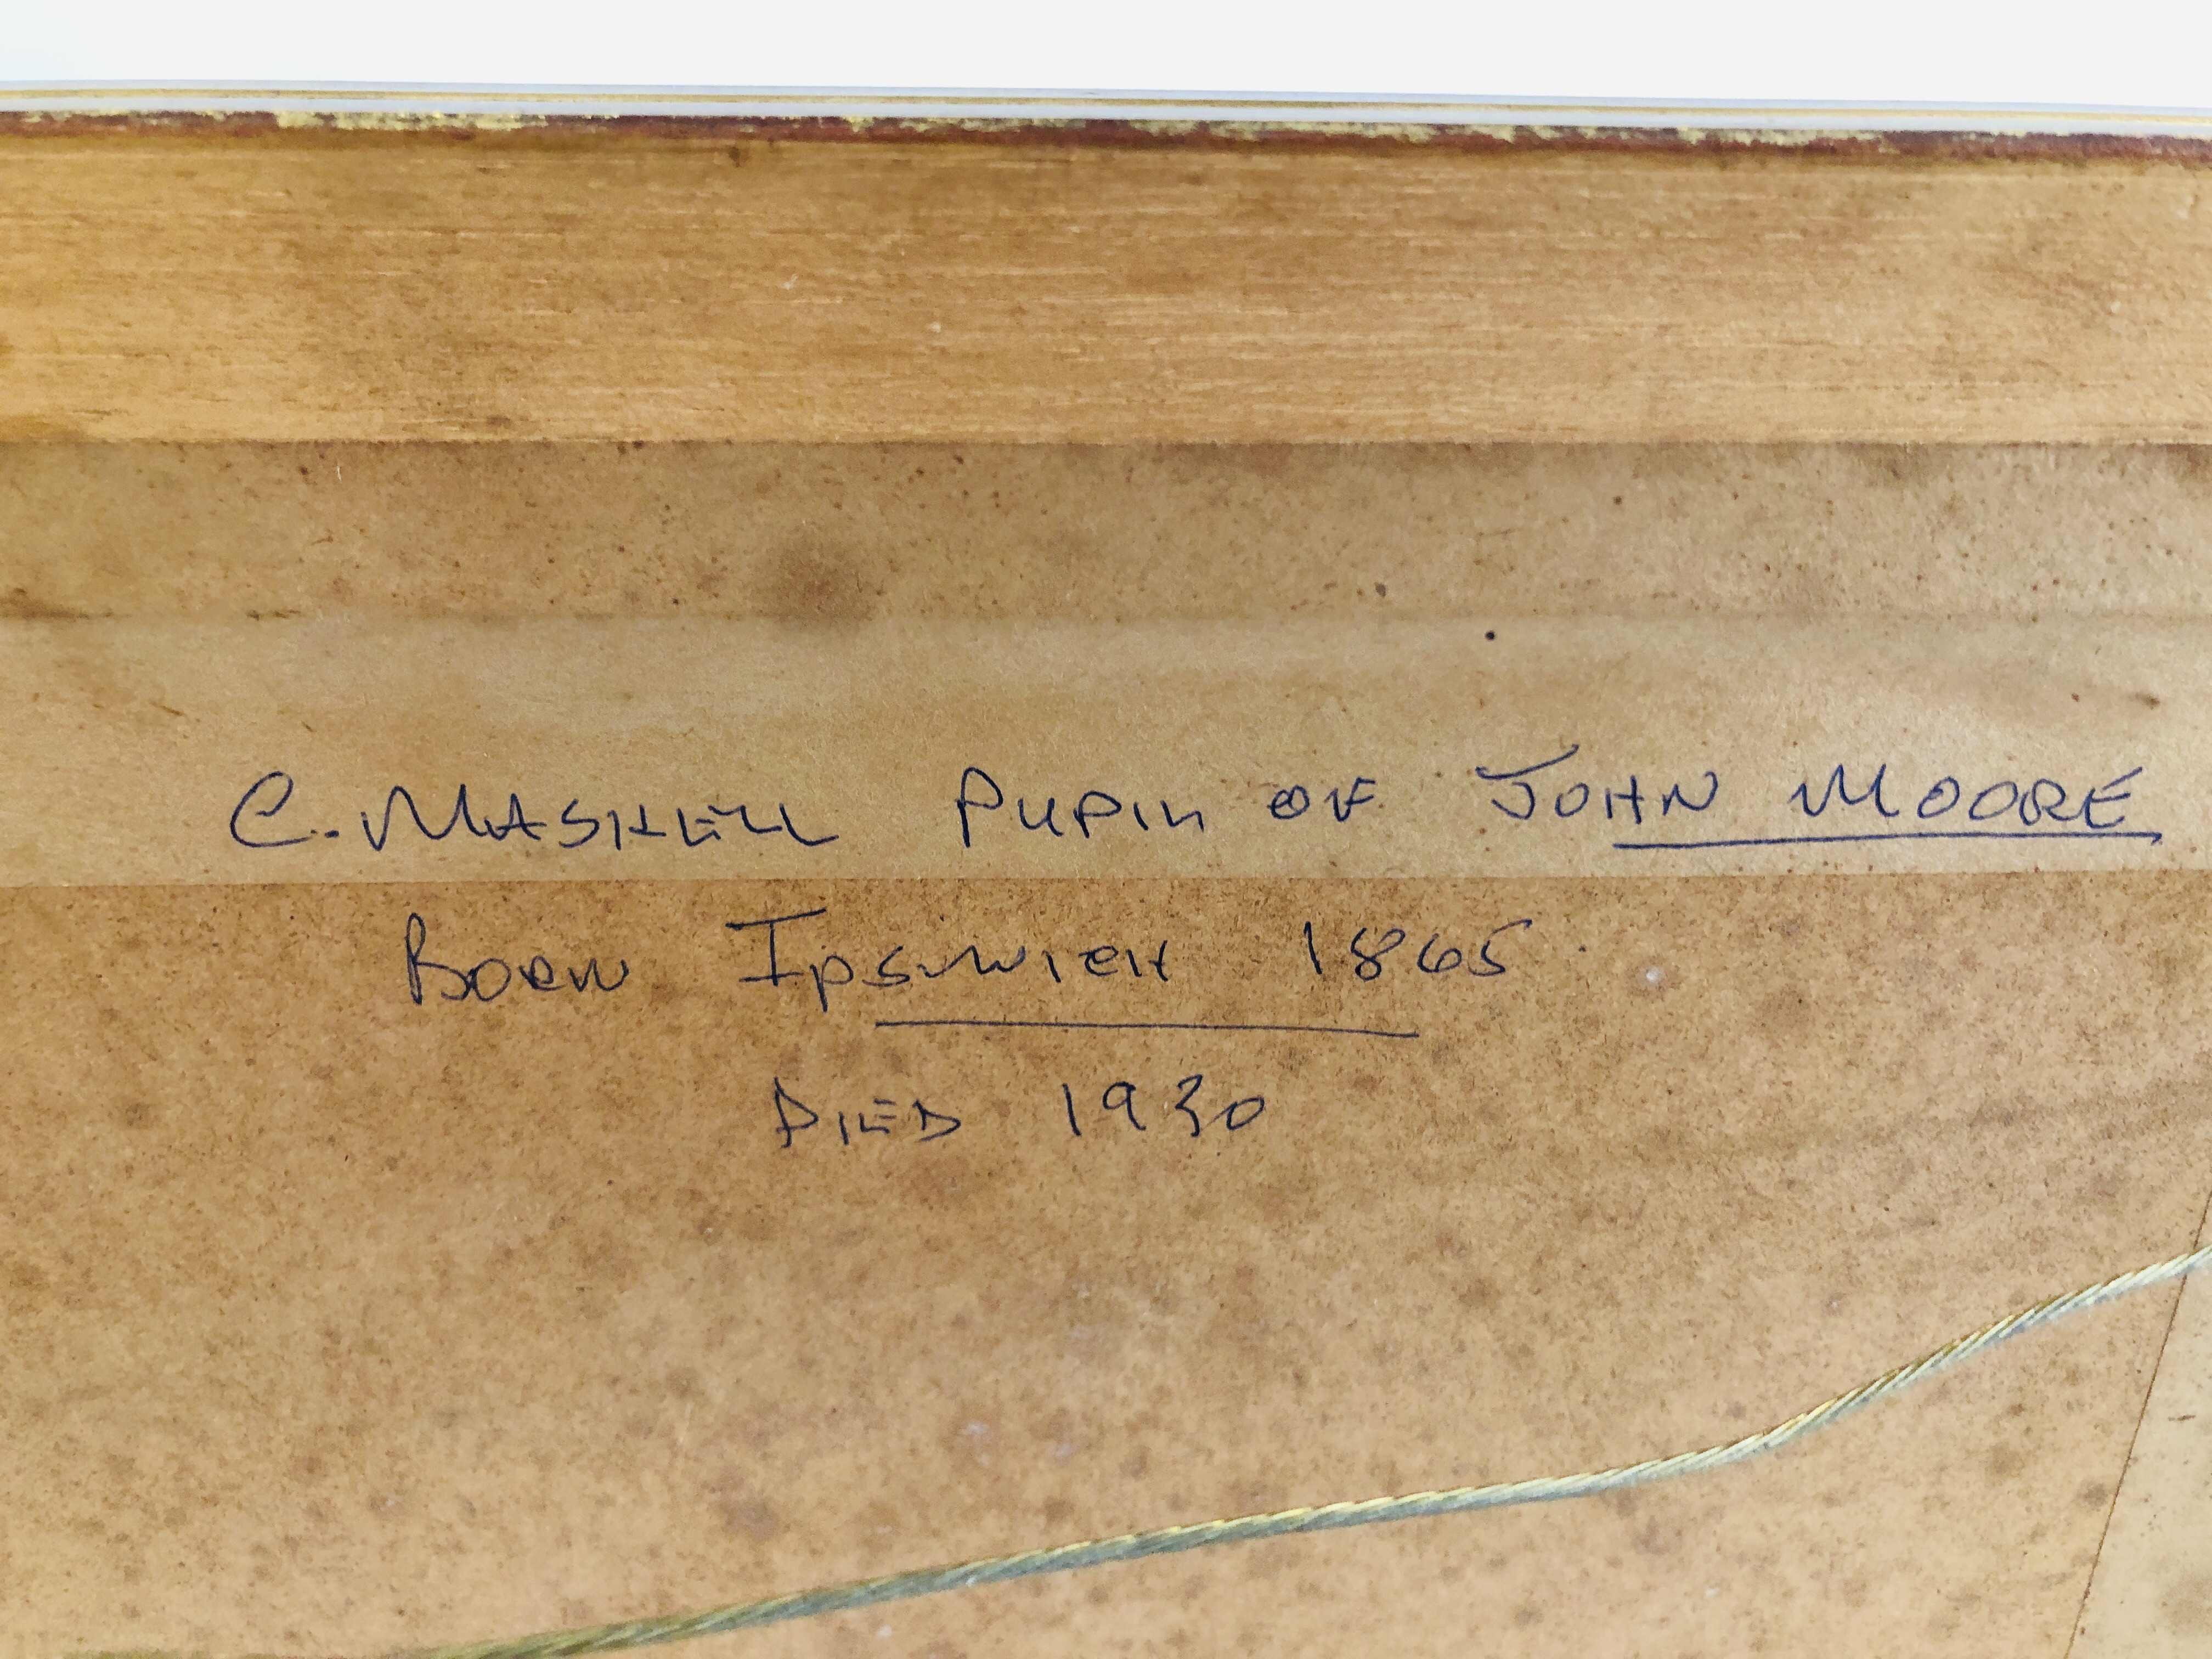 C. MASKELL PUPIL OF JOHN MOORE
BORN IPSWICH 1865
DIED 1930